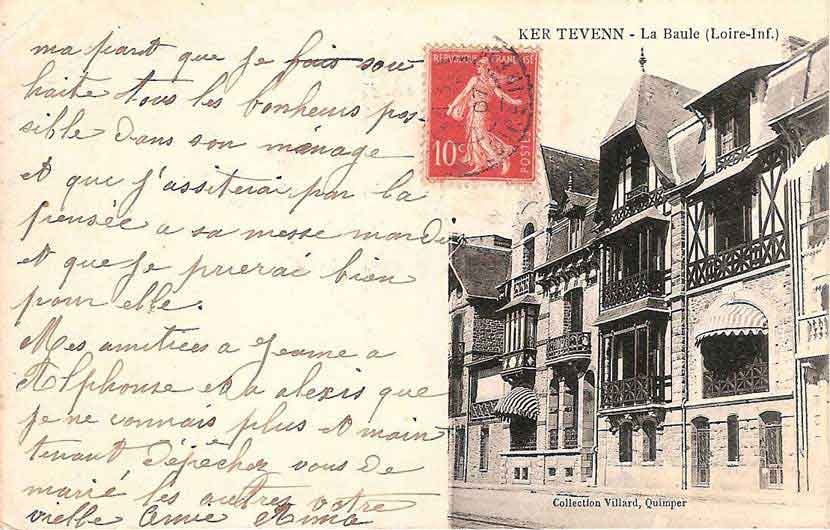 KER TEVENN - La Baule (Loire-Inf.)
REPUBLIQUE FRANÇAISE
10c
POSTES
ma part que je fais sou
haite tous les bonheurs pos-
sible dans son ménage
et que j'assiterai par la
pensée a sa messe mardi
et que je prierai bien
pour elle.
Mes amitiées a Jeanne a
Alphonse et a alexis que
je ne connais plus et main
tenant dépéchez vous de
marié les autres votre
vieille amie Anna
Collection Villard, Quimper